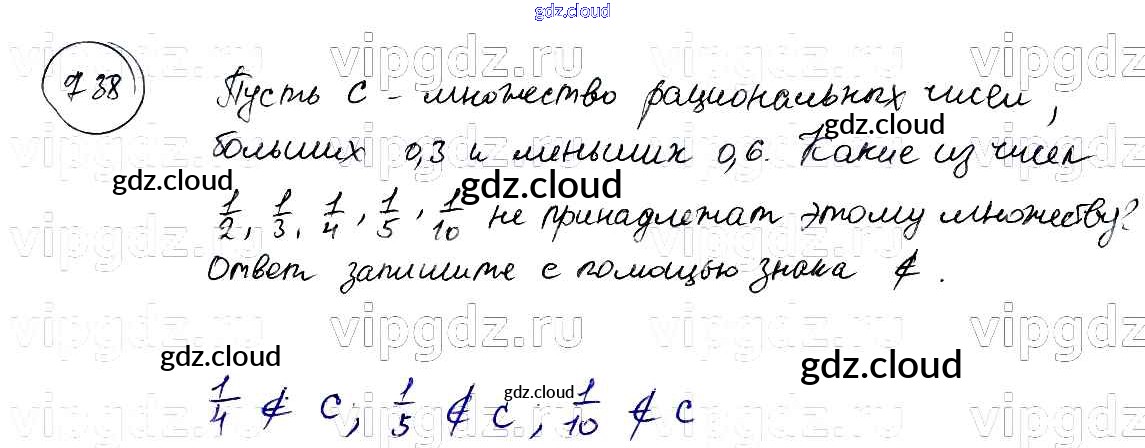 gdz.cloud
vipgdz.ru vipgdz.ru vipgdz
738
Пусть C - множество рациональных чисел,
gdz.cloud
больших 0,3 и меньших 0,6. Какие из чисел
vipgdz.ru vipgdz.ru vipgdz
gdz.cloud gdz.cloud
1/2, 1/3, 1/4, 1/5, 1/10 не принадлежат этому множеству?
Ответ запишите с помощью знака ∉.
vipgdz.ru vipgdz.ru vipgdz
gdz.cloud gdz.cloud
gdz.cloud
1/4 ∉ C, 1/5 ∉ C, 1/10 ∉ C